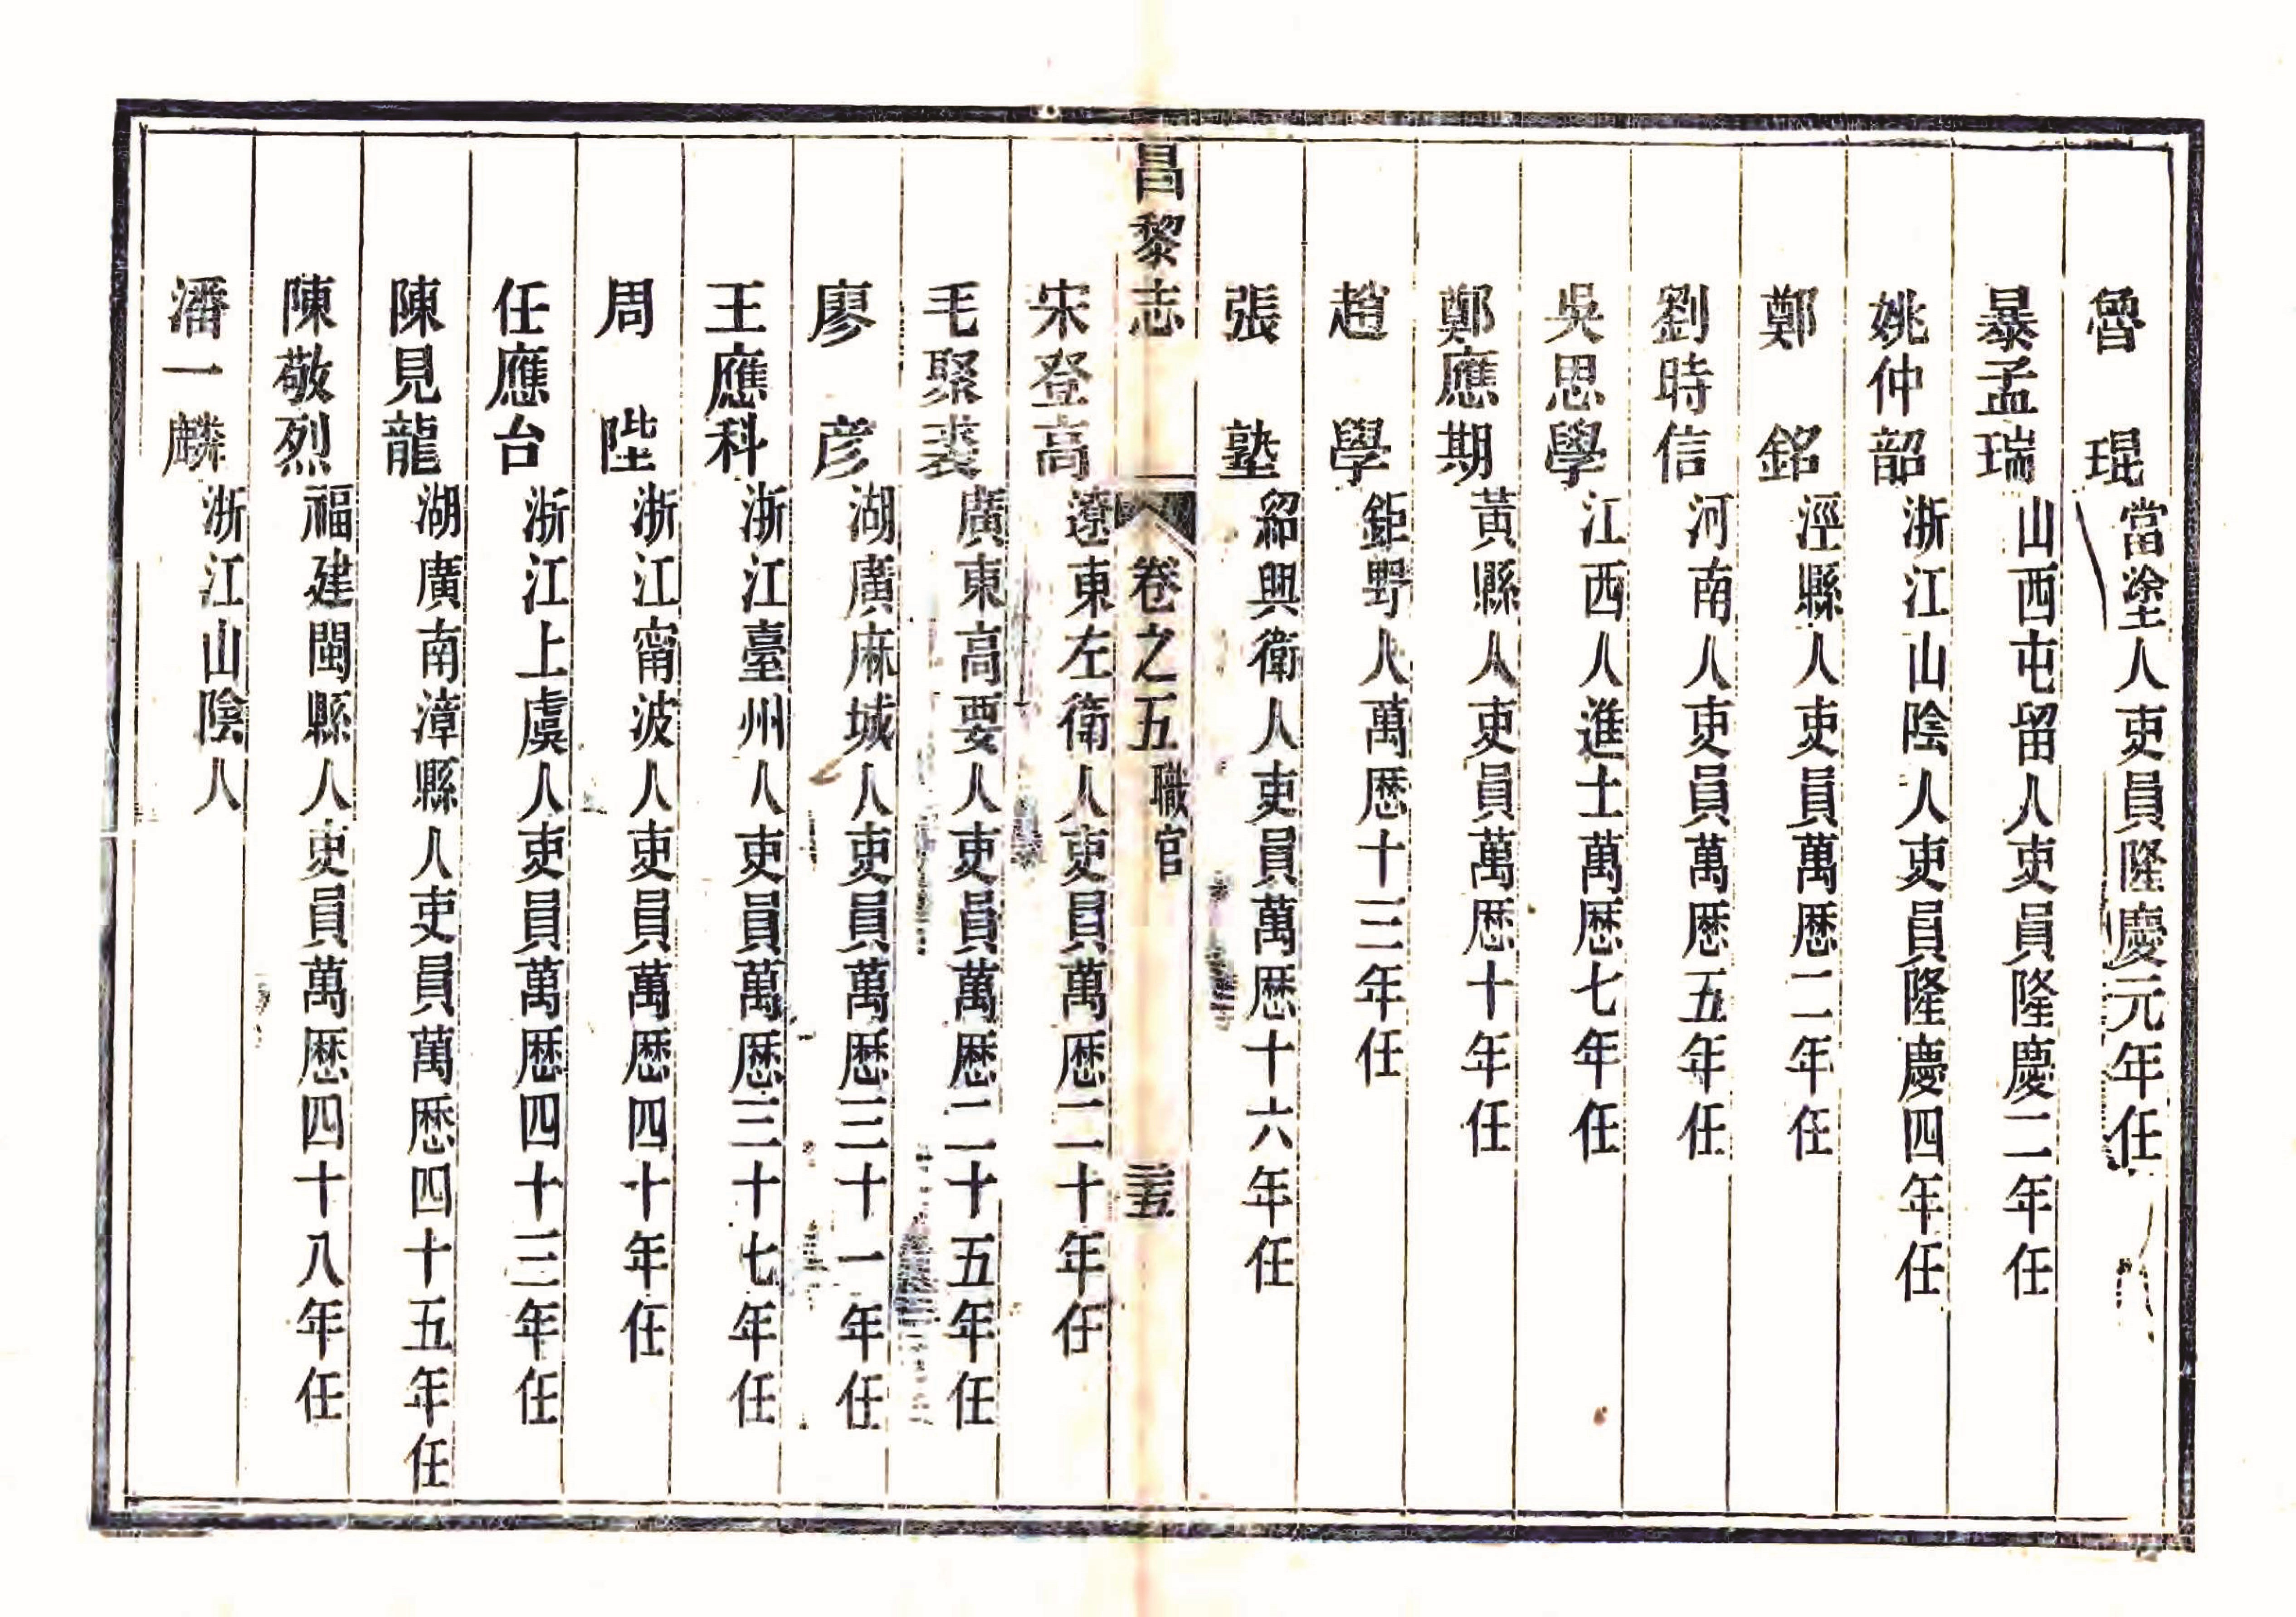 魯　琨當塗人吏員隆慶元年任
暴孟瑞山西屯留人吏員隆慶二年任
姚仲韶浙江山陰人吏員隆慶四年任
鄭　銘涇縣人吏員萬厯二年任
劉時信河南人吏員萬厯五年任
吳思學江西人進士萬厯七年任
鄭應期黃縣人吏員萬厯十年任
趙　學鉅野人萬厯十三年任
張　塾紹興衛人吏員萬厯十六年任
昌黎志　卷之五職官　三五
宋登高遼東左衛人吏員萬厯二十年任
毛聚裘廣東高要人吏員萬厯二十五年任
廖　彦湖廣麻城人吏員萬厯三十一年任
王應科浙江臺州人吏員萬厯三十七年任
周　陛浙江甯波人吏員萬厯四十年任
任應台浙江上虞人吏員萬厯四十三年任
陳見龍湖廣南漳縣人吏員萬厯四十五年任
陳敬烈福建閩縣人吏員萬厯四十八年任
潘一麟浙江山陰人